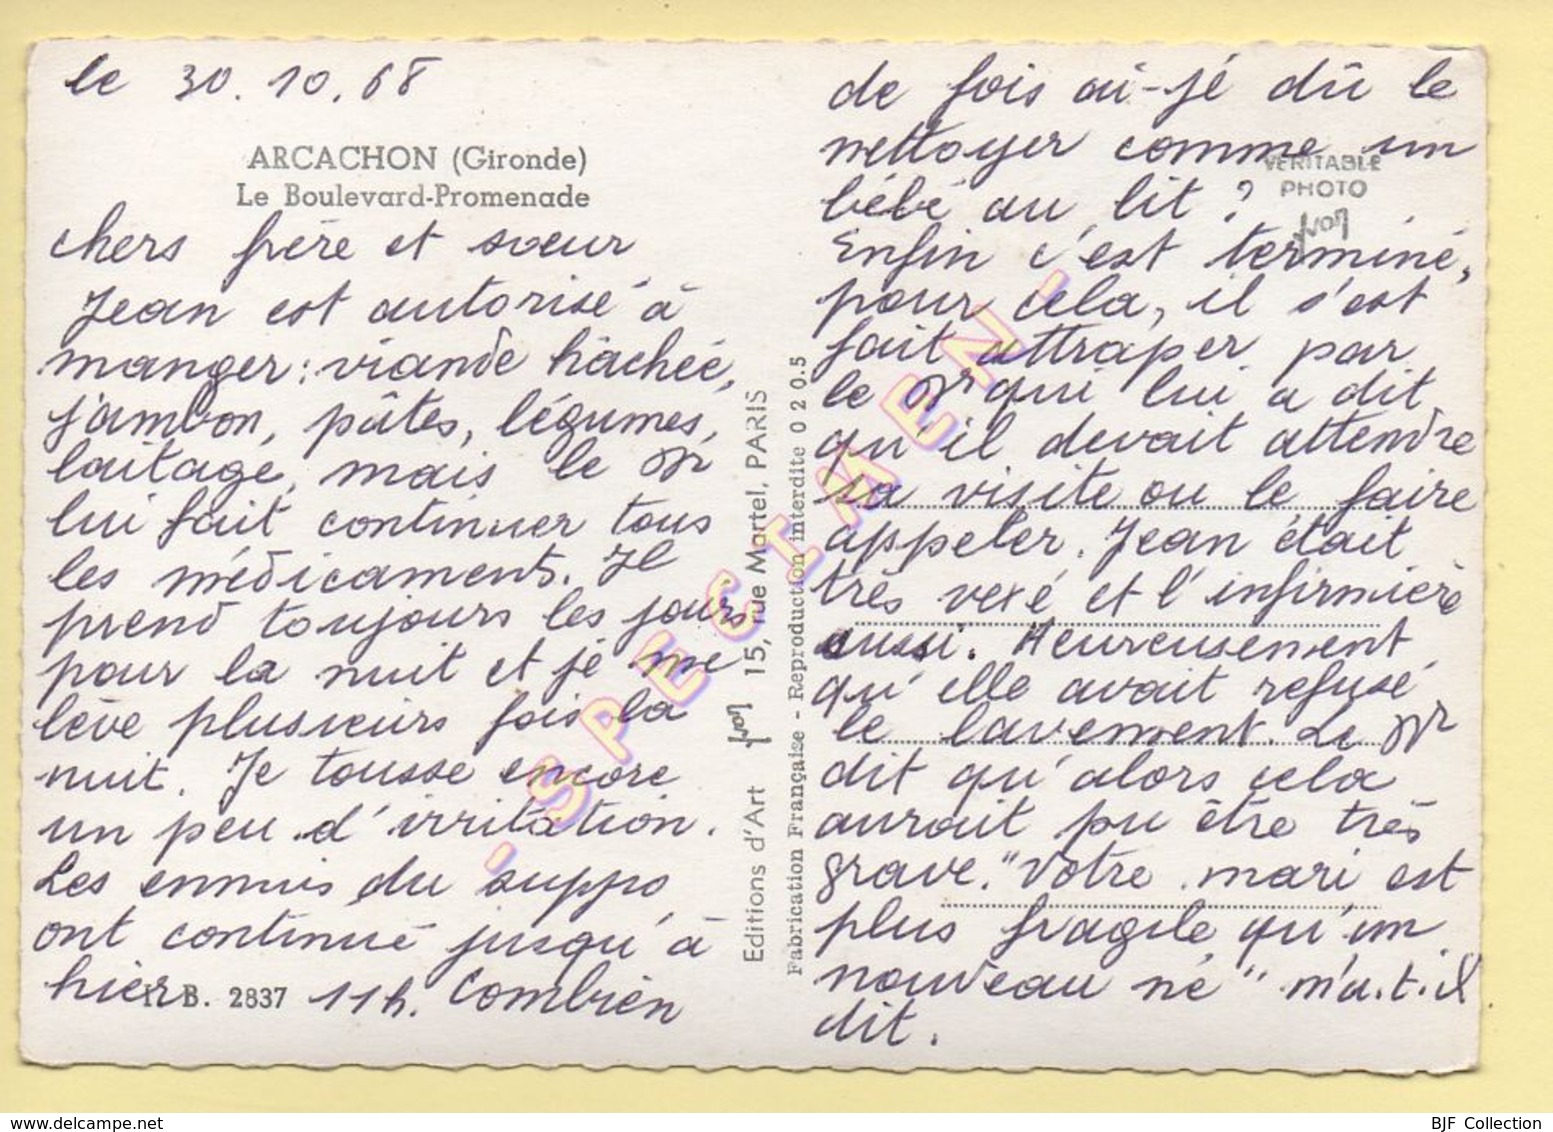 le 30.10.68
ARCACHON (Gironde)
Le Boulevard-Promenade
chers frère et sœur
Jean est autorisé à
manger : viande hâchée,
jambon, pâtes, légumes,
laitage, mais le Dr
lui fait continuer tous
les médicaments. Il
prend toujours les jours
pour la nuit et je me
lève plusieurs fois la
nuit. Je tousse encore
un peu d'irritation.
Les ennuis du suppo
ont continué jusqu'à
hier 11h. Combien
B. 2837
Editions d'Art yvon 15, rue Martel, PARIS
Fabrication Française - Reproduction interdite 0 2 0.5
- SPECIMEN -
VERITABLE
PHOTO
yvon
de fois ai-je dû le
nettoyer comme un
bébé au lit ?
Enfin c'est terminé,
pour cela, il s'est
fait attraper par
le Dr qui lui a dit
qu'il devait attendre
sa visite ou le faire
appeler. Jean était
très vexé et l'infirmière
aussi. Heureusement
qu'elle avait refusé
le lavement. Le Dr
dit qu'alors cela
aurait pu être très
grave. "Votre mari est
plus fragile qu'un
nouveau né" m'a.t.il
dit.
BJF Collection